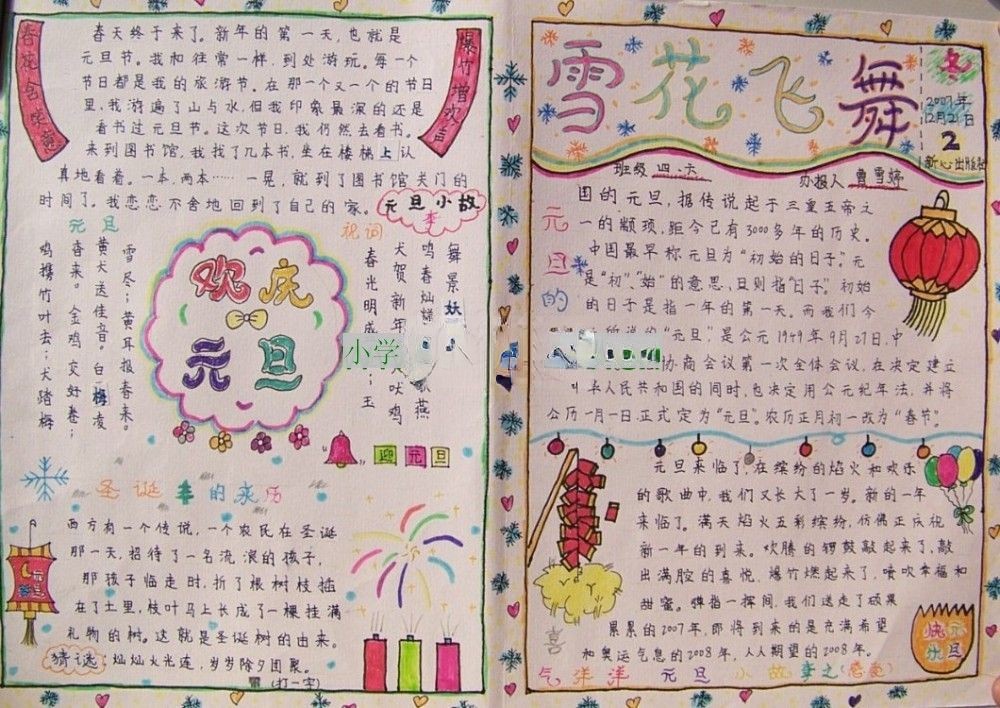 春花含笑意
爆竹增欢声
春天终于来了。新年的第一天,也就是
元旦节。我和往常一样,到处游玩。每一个
节日都是我的旅游节。在那一个又一个的节日
里,我游遍了山与水,但我印象最深的还是
看书过元旦节。这次节日,我仍然去看书。
来到图书馆,我找了几本书,坐在楼梯上认
真地看着。一本,两本……一晃,就到了图书馆关门的
时间了。我恋恋不舍地回到了自己的家。
元旦小故
李
元旦
祝词
雪尽;黄耳报春来。
黄犬送佳音。白梅凌
春来。金鸡交好卷;
鸡携竹叶去;犬踏梅
舞景
鸣春灿
犬贺新年
春光明
燕
吠鸡
玉
欢庆
元旦
小学
迎元旦
圣诞的来历
西方有一个传说,一个农民在圣诞
那一天,招待了一名流浪的孩子,
那孩子临走时,折了根树枝插
在了土里,枝叶马上长成了一棵挂满
礼物的树。这就是圣诞树的由来。
猜谜:灿灿火光连,岁岁除夕团聚。
(打一字)
雪花飞舞
冬
2007年
12月21日
2
新心出版社
班级 四.六
办报人 曹雪婷
元旦的
国的元旦,据传说起于三皇五帝之
一的颛顼,距今已有3000多年的历史。
中国最早称元旦为“初始的日子”。元
是“初”、“始”的意思,旦则指“日子”。初始
的日子是指一年的第一天。而我们今
的“元旦”,是公元1949年9月27日,中
协商会议第一次全体会议,在决定建立
人民共和国的同时,也决定用公元纪年法,并将
公历一月一日正式定为“元旦”。农历正月初一改为“春节”。
元旦来临了,在缤纷的焰火和欢乐
的歌曲中,我们又长大了一岁。新的一年
来临了。满天焰火五彩缤纷,仿佛正庆祝
新一年的到来。欢腾的锣鼓敲起来了,敲
出满腔的喜悦。爆竹燃起来了,喷吹幸福和
甜蜜。弹指一挥间,我们送走了硕果
累累的2007年,即将到来的是充满希望
和奥运气息的2008年,人人期望的2008年。
喜
气洋洋 元旦小故李之
快乐元旦